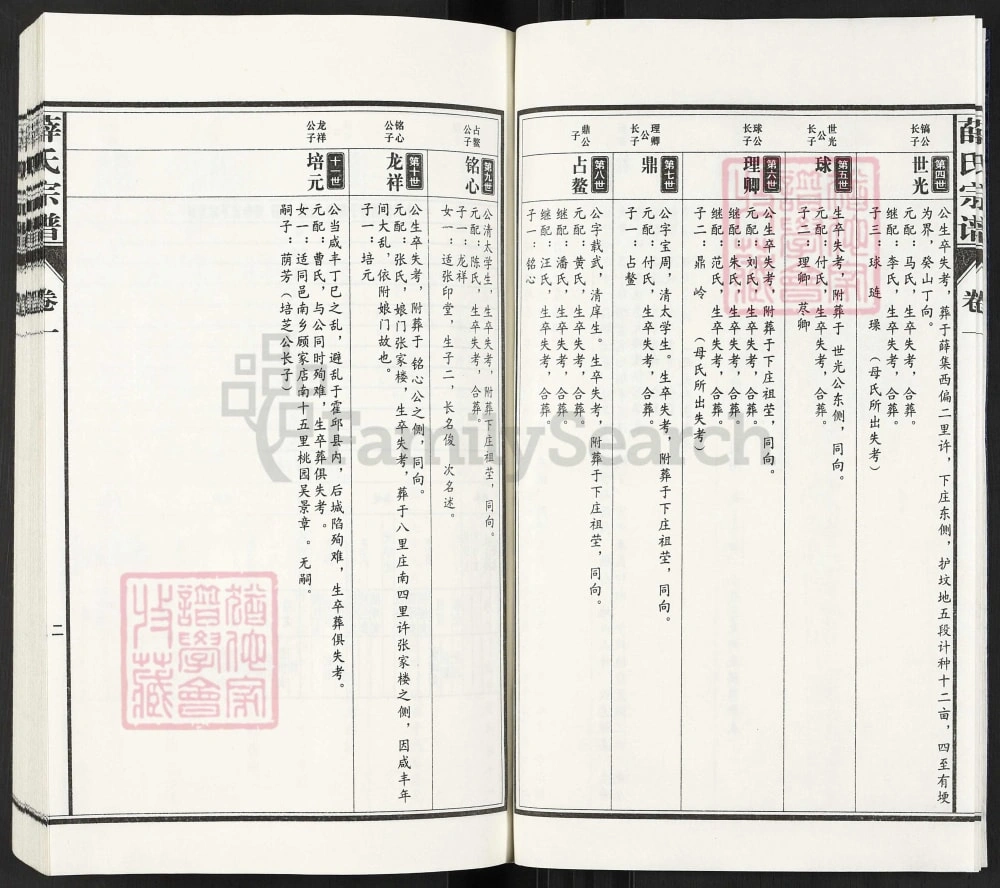 薛氏宗谱
卷一
镐公
公子
第四世
世光
公生卒失考，葬于薛集西偏二里许，下庄东侧，护坟地五段计种十二亩，四至有埂
为界，癸山丁向。
元配：马氏，生卒失考，合葬。
继配：李氏，生卒失考，合葬。
子三：球 琏 璪 （母氏所出失考）
世光公
长子
第五世
球
生卒失考，附葬于 世光公东侧，同向。
元配：付氏，生卒失考，合葬。
子二：理卿 荩卿
球公
长子
第六世
理卿
公生卒失考，附葬于下庄祖茔，同向。
元配：刘氏，生卒失考，合葬。
继配：朱氏，生卒失考，合葬。
继配：范氏，生卒失考，合葬。
子二：鼎 岭 （母氏所出失考）
理卿公
长子
第七世
鼎
公字宝周，清太学生。生卒失考，附葬于下庄祖茔，同向。
元配：付氏，生卒失考，合葬。
子一：占鳌
鼎公
子
第八世
占鳌
公字载武，清庠生。生卒失考，附葬于下庄祖茔，同向。
元配：黄氏，生卒失考，合葬。
继配：潘氏，生卒失考，合葬。
继配：汪氏，生卒失考，合葬。
子一：铭心
占鳌
公子
第九世
铭心
公清太学生，生卒失考，附葬下庄祖茔，同向。
元配：陈氏，生卒失考，合葬。
子一：龙祥
女一：适张印堂，生子二，长名俊 次名述。
铭心
公子
第十世
龙祥
公生卒失考，附葬于 铭心公之侧，同向。
元配：张氏，娘门张家楼，生卒失考，葬于八里庄南四里许张家楼之侧，因咸丰年
间大乱，依附娘门故也。
子一：培元
龙祥
公子
十一世
培元
公当咸丰丁巳之乱，避乱于霍邱县内，后城陷殉难，生卒葬俱失考。
元配：曹氏，与公同时殉难，生卒葬俱失考。
女一：适同邑南乡顾家店南十五里桃园吴景章。无嗣。
嗣子：荫芳（培芝公长子）
薛氏宗谱
卷一
二
FamilySearch